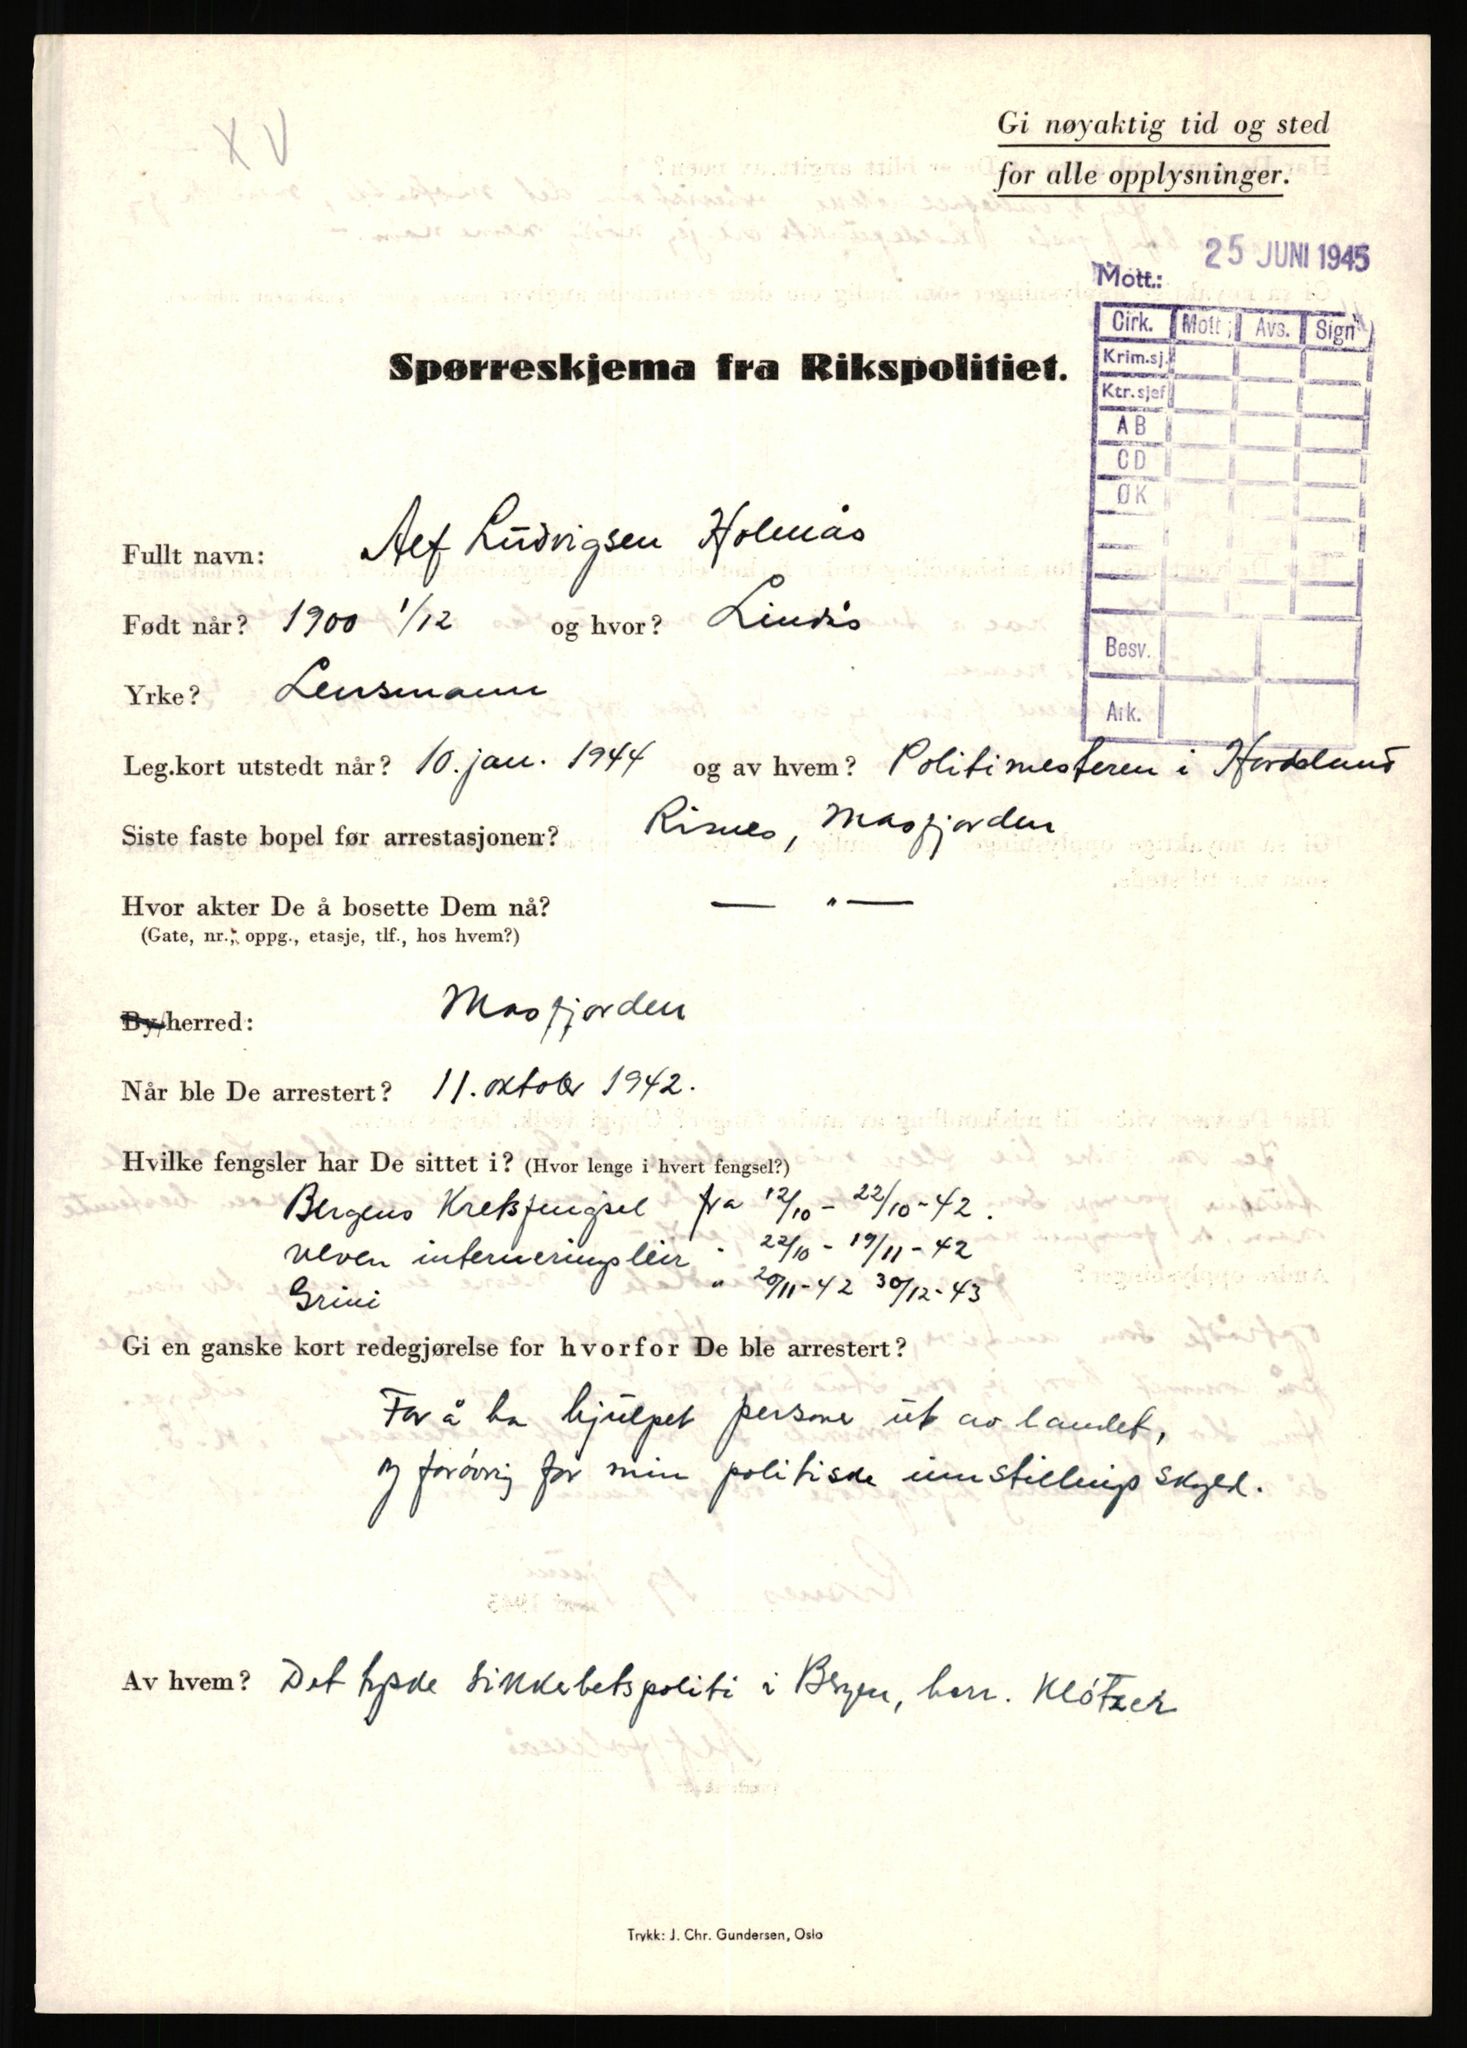 V X
Gi nøyaktig tid og sted
for alle opplysninger.
25 JUNI 1945
Mott.:
Cirk. Mott. Avs. Sign
Krim.sj.
Ktr.sjef
AB
CD
ØK
Besv.
Ark.
Spørreskjema fra Rikspolitiet.
Fullt navn: Alf Ludvigsen Holmås
Født når? 1900 1/12 og hvor? Lindås
Yrke? Lensmann
Leg.kort utstedt når? 10. jan. 1944 og av hvem? Politimesteren i Hordaland
Siste faste bopel før arrestasjonen? Risnes, Masfjorden
Hvor akter De å bosette Dem nå? — " —
(Gate, nr., oppg., etasje, tlf., hos hvem?)
By/herred: Masfjorden
Når ble De arrestert? 11. oktober 1942.
Hvilke fengsler har De sittet i? (Hvor lenge i hvert fengsel?)
Bergens Kretsfengsel fra 12/10 - 22/10-42.
Ulven interneringsleir " 22/10 - 19/11-42
Grini " 20/11-42 30/12-43
Gi en ganske kort redegjørelse for hvorfor De ble arrestert?
For å ha hjulpet persone ut av landet,
og forøvrig for min politiske innstillings skyld.
Av hvem? Det tyske sikkerhetspoliti i Bergen, herr. Klötzer
Trykk: J. Chr. Gundersen, Oslo